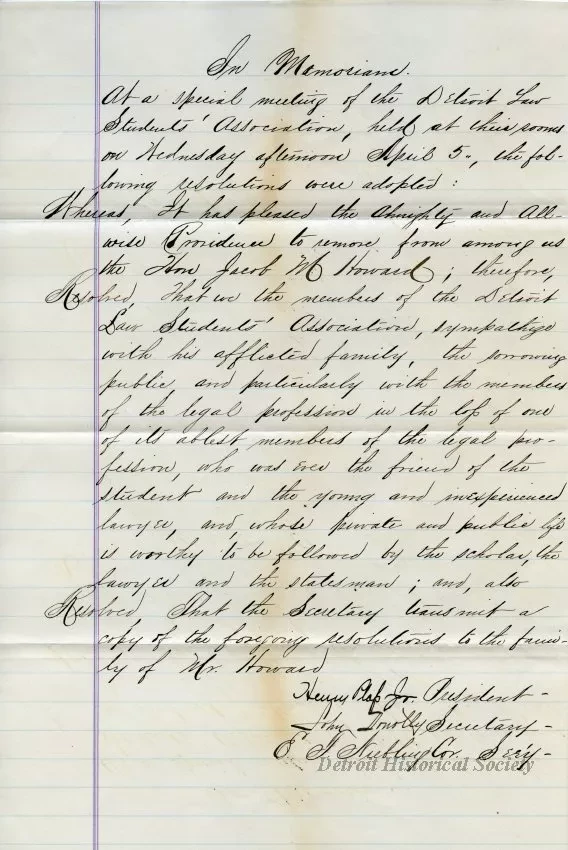 In Memoriam.
At a special meeting of the Detroit Law
Students' Association, held at their rooms
on Wednesday afternoon April 5., the fol-
lowing resolutions were adopted :
Whereas, It has pleased the Almighty and All-
wise Providence to remove from among us
the Hon Jacob M Howard ; therefore,
Resolved, That we the members of the Detroit
Law Students' Association, sympathize
with his afflicted family, the sorrowing
public, and particularly with the members
of the legal profession in the loss of one
of its ablest members of the legal pro-
fession, who was ever the friend of the
student and the young and inexperienced
lawyer, and, whose private and public life
is worthy to be followed by the scholar, the
lawyer and the statesman ; and, also
Resolved That the Secretary transmit a
copy of the foregoing resolutions to the fami-
ly of Mr. Howard
Henry Jr. President -
John Donolly Secretary -
E Cor. Secy -
Detroit Historical Society